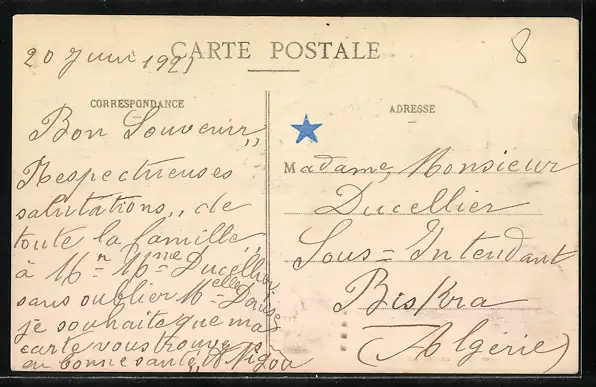 20 Juin 1925
CARTE POSTALE
8
CORRESPONDANCE
Bon Souvenir,,
Respectueuses
salutations,, de
toute la famille,,
à Mr Mme Ducellier
sans oublier Melle Denise
je souhaite que ma
carte vous trouve
en bonne santé,
ADRESSE
Madame, Monsieur
Ducellier
Sous=Intendant
Biskra
(Algérie)